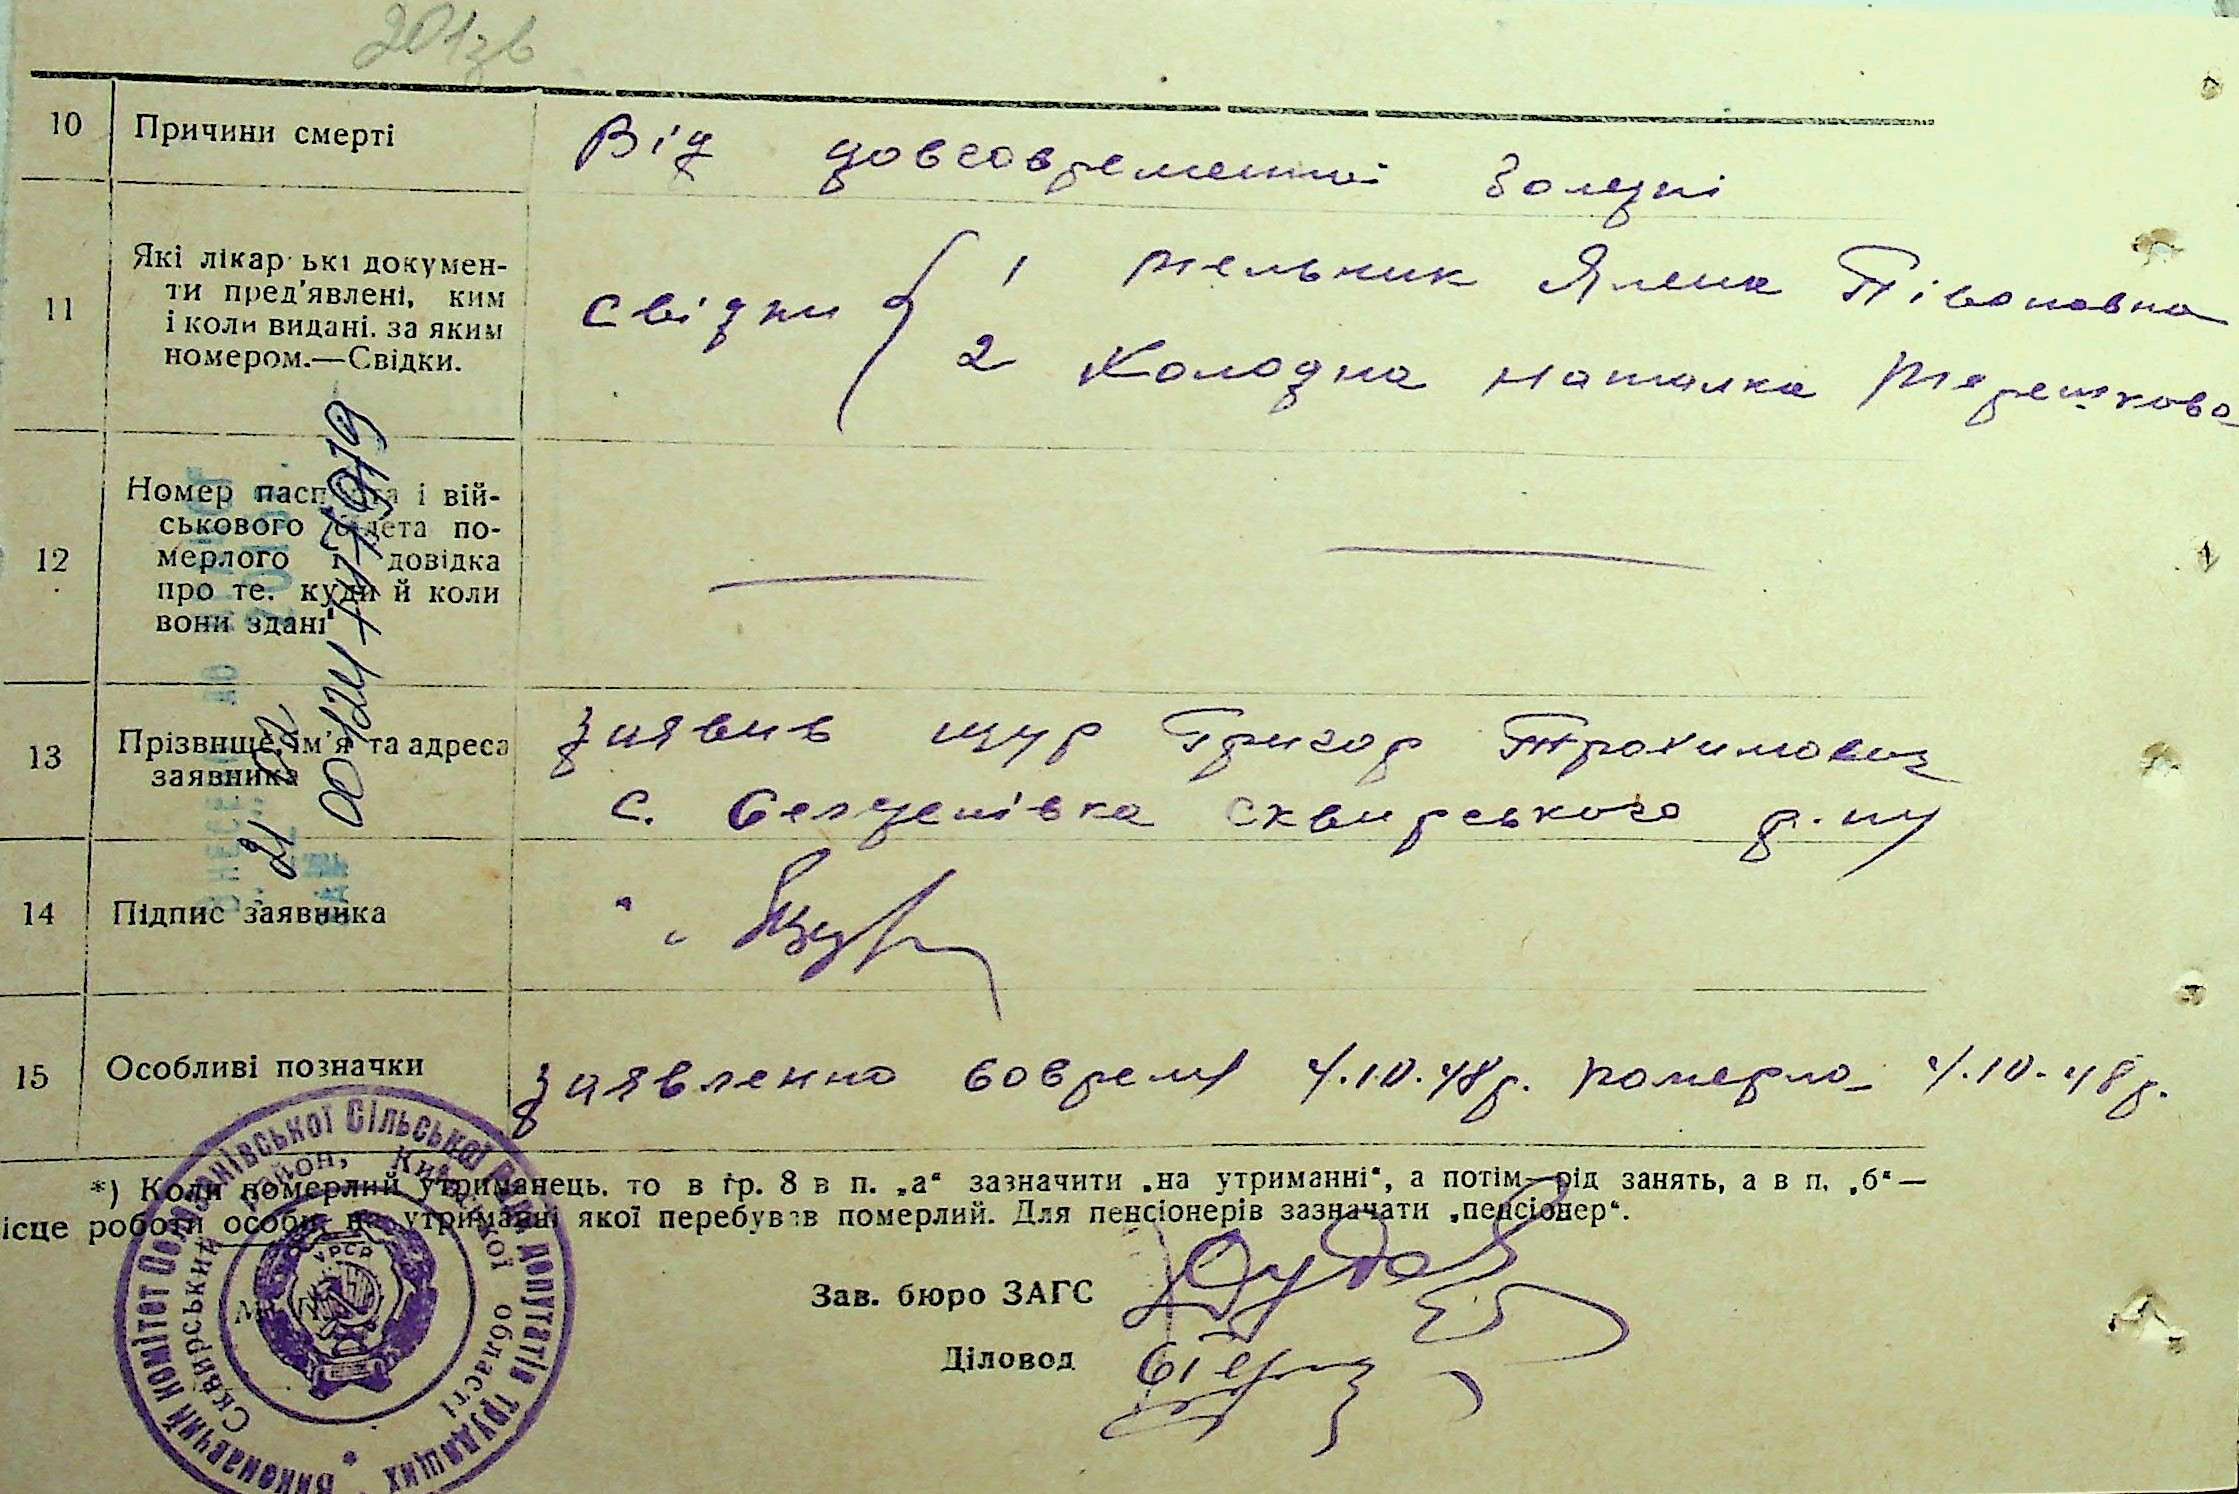 201зв
10 Причини смерті
Від довговременної Болезні
11 Які лікарські докумен-
ти пред'явлені, ким
і коли видані. за яким
номером.—Свідки.
Свідки 1 Мельник Ялена
2 Колодна Наталка
12 Номер паспорта і вій-
ськового білета по-
мерлого і довідка
про те. куди й коли
вони здані
13 Прізвище, ім'я та адреса
заявника
Заявив Щур Григор Трохимович
с. Селезенівка Сквирського р-ну
14 Підпис заявника
Щур
15 Особливі позначки
Заявленно вовремя 4.10.48р. померла 4.10.48р.
*) Коли померлий утриманець. то в гр. 8 в п. „а“ зазначити „на утриманні“, а потім—рід занять, а в п. „б“—
ісце роботи особи, на утриманні якої перебував померлий. Для пенсіонерів зазначати „пенсіонер“.
Зав. бюро ЗАГС
Діловод
Виконавчий комітет Сільської Ради депутатів трудящих
Сквирський район, Київської області
УРСР